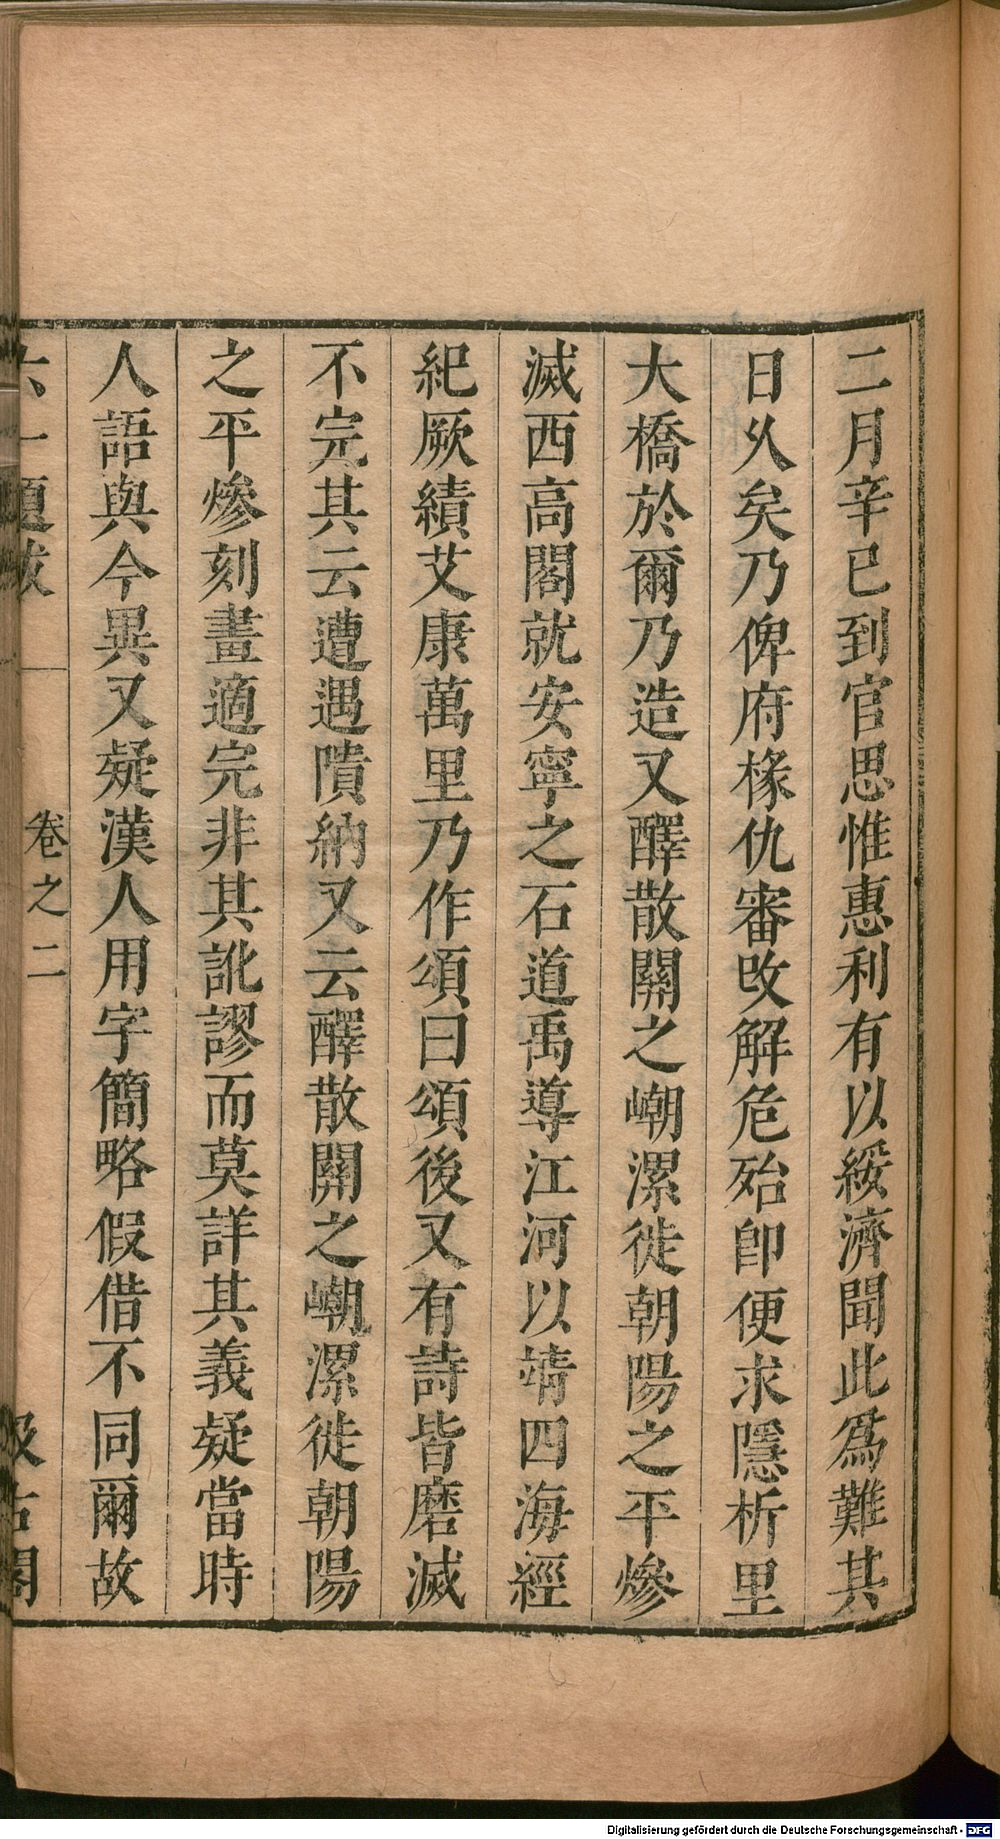 二月辛巳到官思惟惠利有以綏濟聞此爲難其
日乆矣乃俾府椽仇審改解危殆卽便求隱析里
大橋於爾乃造又醳散關之嶃漯徙朝陽之平㸑
滅西高閣就安寧之石道禹導江河以靖四海經
紀厥績艾康萬里乃作頌曰頌後又有詩皆磨滅
不完其云遭遇隤納又云醳散關之嶃漯徙朝陽
之平㸑刻畫適完非其訛謬而莫詳其義疑當時
人語與今異又疑漢人用字簡略假借不同爾故
六一題跋 卷之二 汲古閣
Digitalisierung gefördert durch die Deutsche Forschungsgemeinschaft - DFG